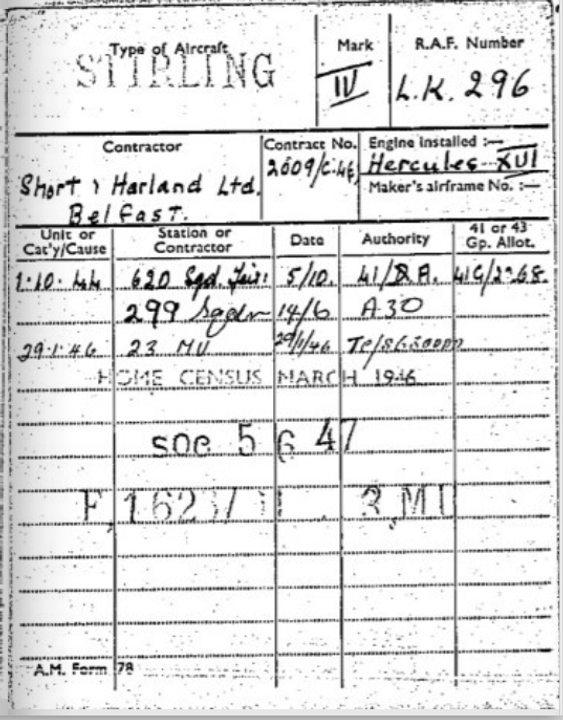 Type of Aircraft
STIRLING
Mark
IV
R.A.F. Number
L.K. 296
Contractor
Short & Harland Ltd.
Belfast.
Contract No.
2009/C.46
Engine installed :—
Hercules XVI
Maker's airframe No. :—
Unit or Cat'y/Cause
Station or Contractor
Date
Authority
41 or 43 Gp. Allot.
1.10.44 620 Sqd. 5/10. 41/
299 Sqdn 14/6 A30
29.1.46 23 MU 29/1/46
HOME CENSUS MARCH 1946
soc 5 6 47
A.M. Form 78